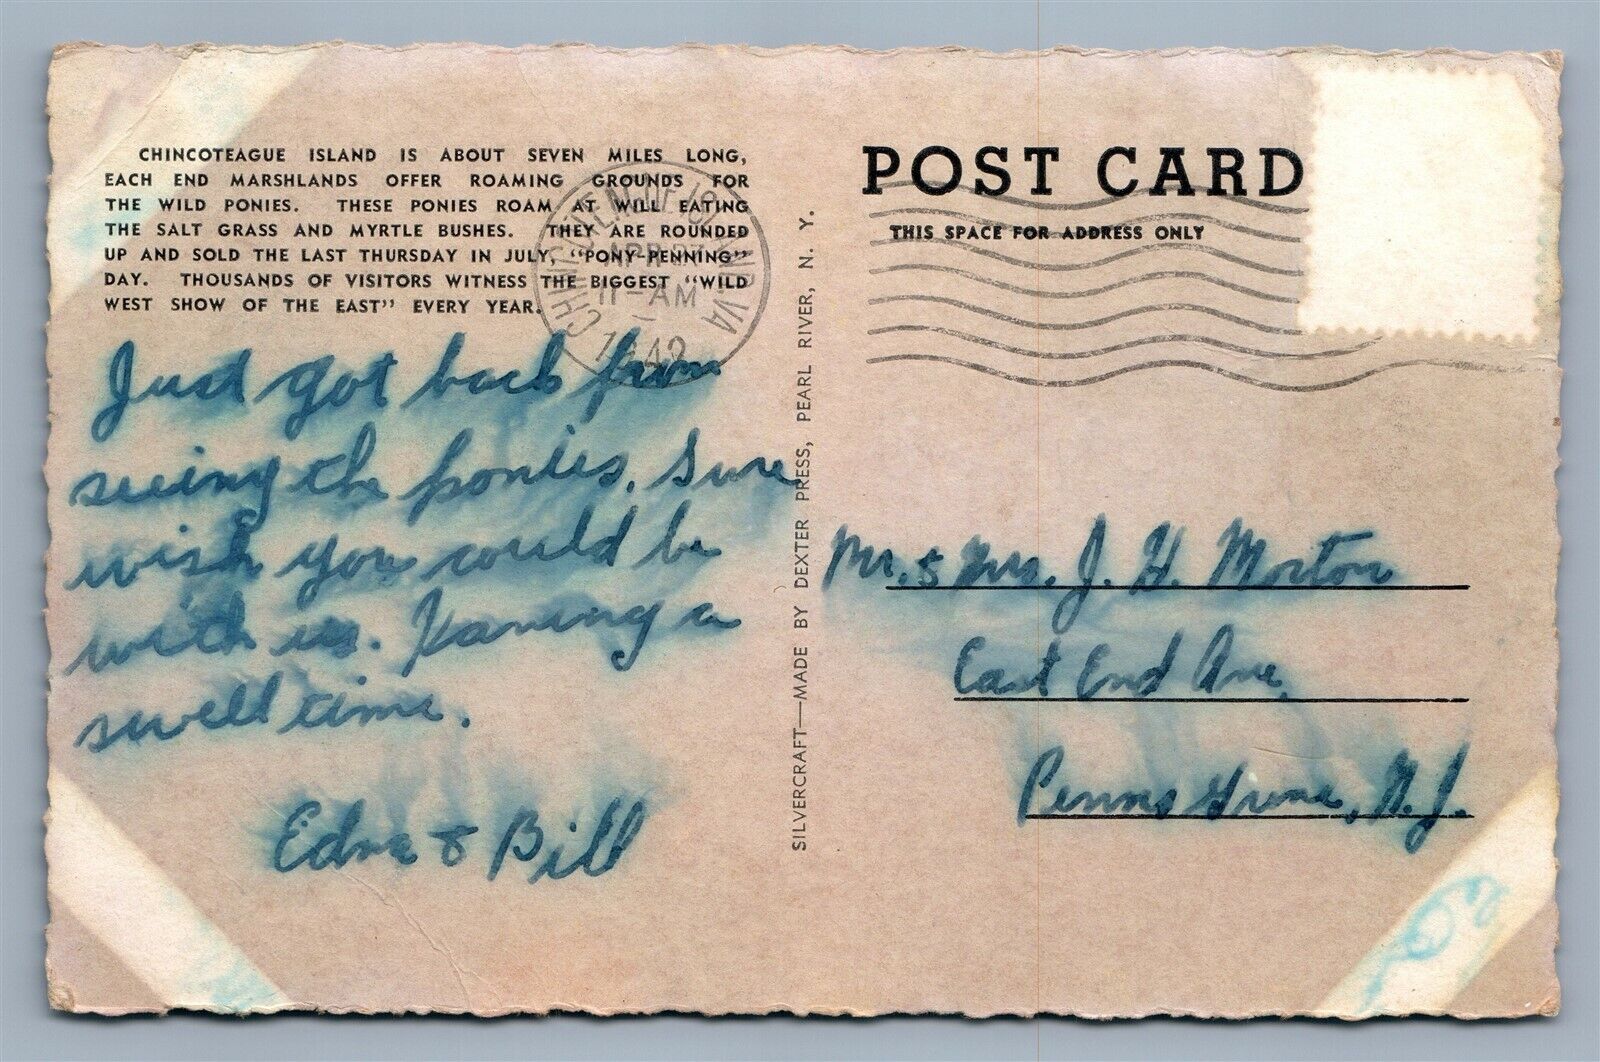 CHINCOTEAGUE ISLAND IS ABOUT SEVEN MILES LONG,
EACH END MARSHLANDS OFFER ROAMING GROUNDS FOR
THE WILD PONIES. THESE PONIES ROAM AT WILL EATING
THE SALT GRASS AND MYRTLE BUSHES. THEY ARE ROUNDED
UP AND SOLD THE LAST THURSDAY IN JULY, "PONY-PENNING"
DAY. THOUSANDS OF VISITORS WITNESS THE BIGGEST "WILD
WEST SHOW OF THE EAST" EVERY YEAR.
Just got back from
seeing the ponies. Sure
wish you could be
with us. Having a
swell time.
Edna & Bill
SILVERCRAFT—MADE BY DEXTER PRESS, PEARL RIVER, N. Y.
POST CARD
THIS SPACE FOR ADDRESS ONLY
Mr. & Mrs. J. H. Morton
East End Ave.
Penns Grove, N. J.
CHINCOTEAGUE ISLAND VA
APR 27
11-AM